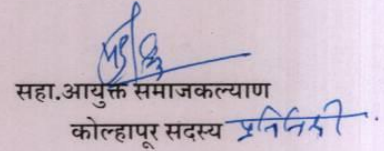 सहा.आयुक्त समाजकल्याण
कोल्हापूर सदस्य प्रतिनिधी.